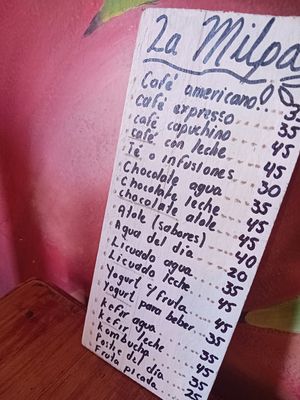 La Milpa
Café americano... 35
café expresso... 35
café capuchino... 45
café con leche... 45
Té o infusiones... 30
Chocolate agua... 35
Chocolate leche... 45
chocolate atole... 45
Atole (sabores)... 40
Agua del dia... 20
Licuado agua... 35
Licuado leche... 45
Yogurt y fruta... 45
yogurt para beber... 35
kefir agua... 35
kefir leche... 45
kombucha... 35
Postre del dia... 35
Fruta picada... 25